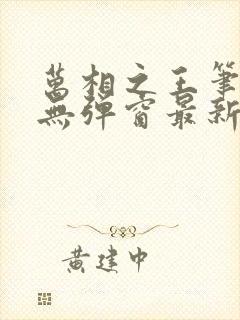 萬相之王筆
無彈窗最新
黃建中